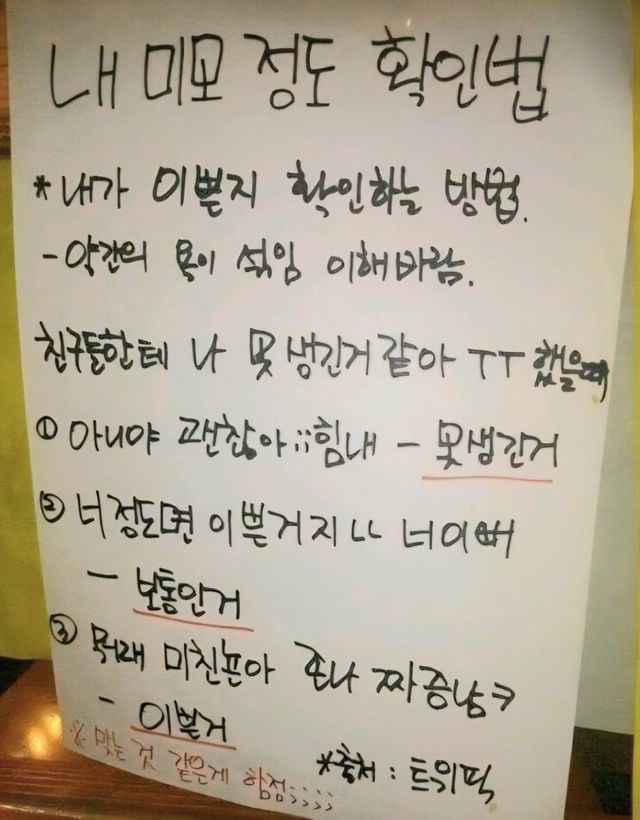 내 미모 정도 확인법
* 내가 이쁜지 확인하는 방법.
- 약간의 욕이 섞임 이해바람.
친구들한테 나 못생긴거같아 ㅜㅜ 했을때
① 아니야 괜찮아;;힘내 - 못생긴거
② 너정도면 이쁜거지 ㄴㄴ 너이뻐
- 보통인거
③ 뭐래 미친년아 존나 짜증남ㅋ
- 이쁜거
※ 맞는 것 같은게 함정;;;;
*출처 : 트위픽